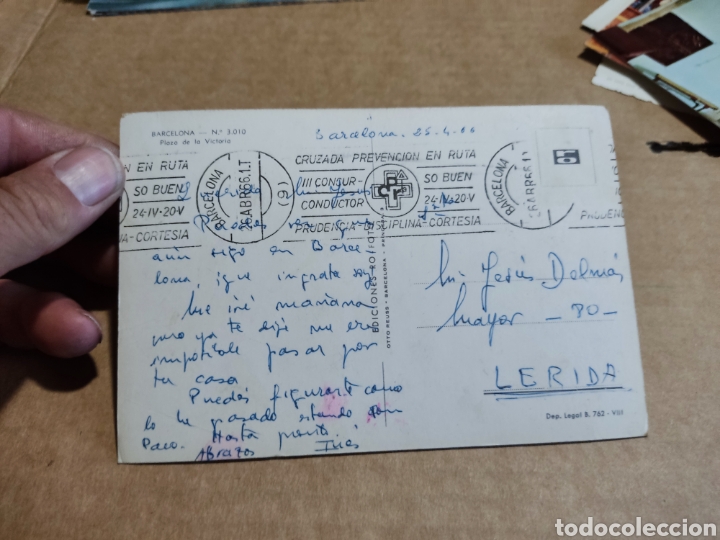 BARCELONA — N.º 3.010
Plaza de la Victoria
Barcelona. 25-4-66
EN RUTA
SO BUEN
24-IV-20-V
INA-CORTESIA
BARCELONA
ABR 66.1.T
(9)
CRUZADA PREVENCION EN RUTA
III CONSUR-
CONDUCTOR
SO BUEN
24-IV-20V
PRUDENCIA-DISCIPLINA-CORTESIA
BARCELONA
PRUDEN
Querida
aún sigo en Barce
lona, ¡que ingrata soy
Me iré mañana
pero ya te dije me era
imposible pasar por
tu casa
Puedes figurarte como
lo he pasado estando con
Paco. Hasta pronto
Abrazos Inés
EDICIONES
OTTO PEUSS - BARCELONA -
Jesús Dalmás
Mayor - 80 -
LERIDA
Dep. Legal B. 762 - VIII
todocoleccion